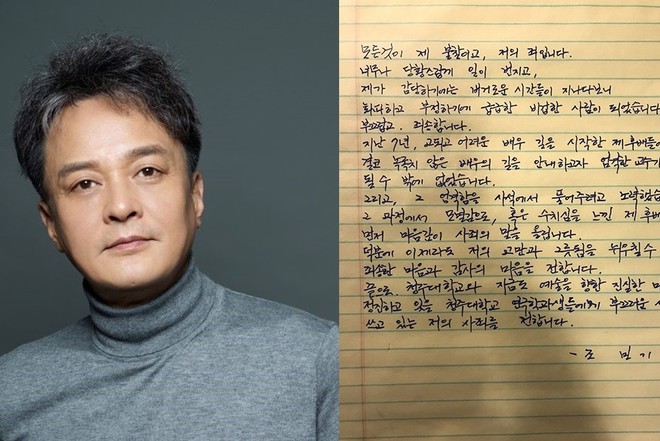 모든것이 제 불찰이고, 저의 죄입니다.
너무나 당황스럽게 일이 번지고,
제가 감당하기에는 버거로운 시간들이 지나다보니
회피하고 부정하기에 급급한 비겁한 사람이 되었습니다
부끄럽고, 죄송합니다.
지난 7년, 고되고 어려운 배우 길을 시작한 제 후배들에
결코 녹록치 않은 배우의 길을 안내하고자 엄격한 교수가
될 수 밖에 없었습니다.
그리고, 그 엄격함을 사석에서 풀어주려고 노력했습
그 과정에서 모멸감으로, 혹은 수치심을 느낀 제 후배
먼저 마음깊이 사죄의 말을 올립니다.
덕분에 이제라도 저의 교만과 그릇됨을 뉘우칠 수
죄송한 마음과 감사의 마음을 전합니다.
끝으로, 청주대학교와 지금도 예술을 향한 진실한 마
정진하고 있을 청주대학교 연극학과생들에게 부끄러운 사
쓰고 있는 저의 사죄를 전합니다.
- 조 민 기